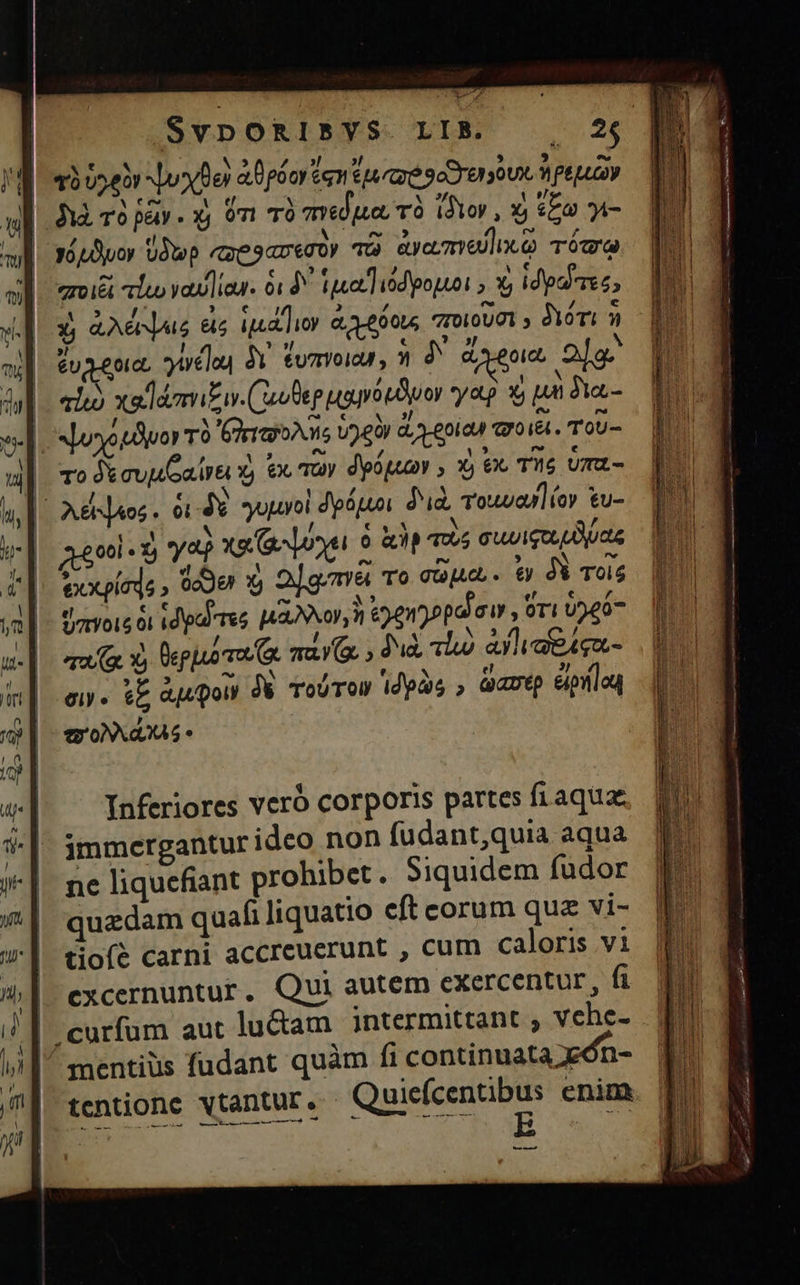 SVDORIBVS LIB. 25
τὸ ὑγρὸν ψυχθὲν ἀθρόον ἠρεμῶν
διὰ τὸ ῥεῖν. καὶ ὅτι τὸ πνεῦμα τὸ ἴδιον, καὶ ἔξω γι-
γόμενον ὕδωρ προσπεσὸν τῷ ἀναπνευστικῷ τόπῳ
ποιεῖ τὴν ναυτίαν. οἱ δ' ἱματιόδρομοι, καὶ ἱδρῶντες,
καὶ ἀλείψεις εἰς ἱμάτιον ἀχρόους ποιοῦσι, διότι ἡ
εὔχροια γίνεται δι' εὔπνοιαν, ἡ δ' ἄχροια διὰ
τὴν κατάπνιξιν. γὰρ καὶ μὴ δια-
ψυχόμενον τὸ ἐπιπολῆς ὑγρὸν ἄχροιαν ποιεῖ. τοῦ-
το δὲ συμβαίνει καὶ ἐκ τῶν δρόμων, καὶ ἐκ τῆς ὑπα-
λείψεως. οἱ δὲ γυμνοὶ δρόμοι διὰ τοὐναντίον εὔ-
χροοι. καὶ γὰρ καταψύχει ὁ ἀὴρ τὰς συνισταμένας
ἐκκρίσεις, ὅθεν καὶ διαπνεῖ τὸ σῶμα. ἐν δὲ τοῖς
ὕπνοις οἱ ἱδρῶντες μᾶλλον, ἢ ἐγρηγορόσιν, ὅτι ὑγρό-
τατα καὶ θερμότατα πάντα, διὰ τὴν ἀντιπερίστα-
σιν. ἐξ ἀμφοῖν δὲ τούτοιν ἱδρὼς, ὥσπερ εἴρηται
πολλάκις.
Inferiores verò corporis partes si aquæ
immergantur ideo non sudant, quia aqua
ne liquefiant prohibet. Siquidem sudor
quædam quasi liquatio est eorum quæ vi-
tiosè carni accreuerunt, cum caloris vi
excernuntur. Qui autem exercentur, si
cursum aut luctam intermittant, vehe-
mentiùs sudant quàm si continuata con-
tentione vtantur. Quiescentibus enim
E